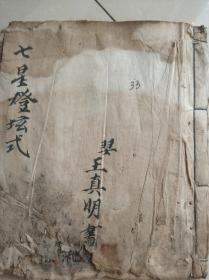 七星燈坛式
33
王真明書